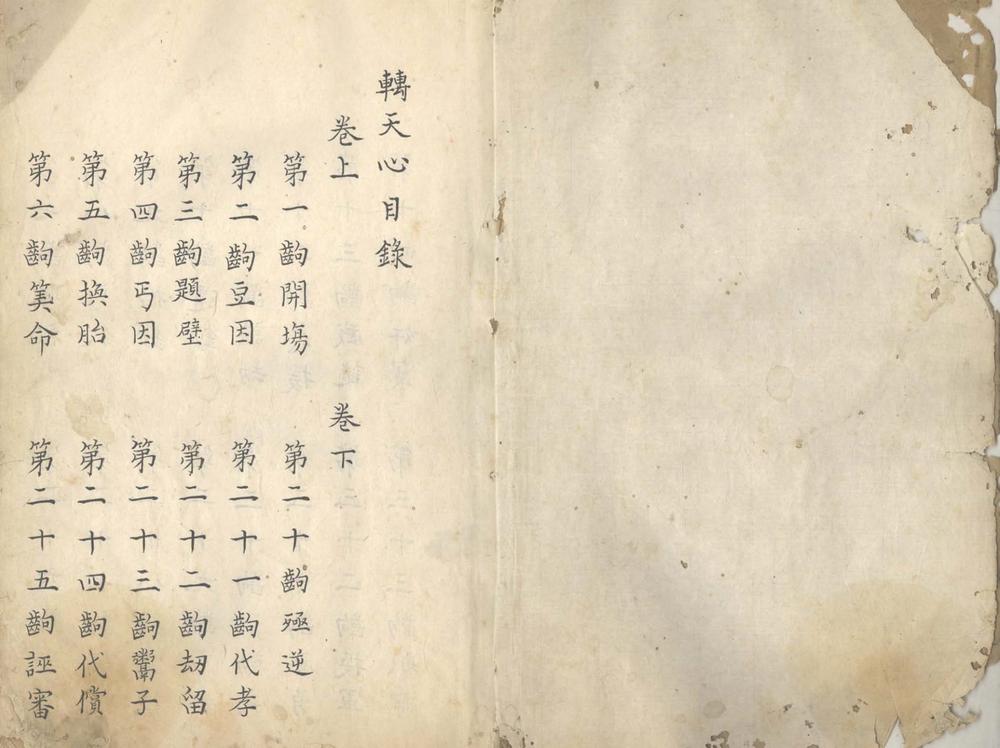 轉天心目錄
卷上 卷下
第一齣開塲 第二十齣殛逆
第二齣豆因 第二十一齣代孝
第三齣題壁 第二十二齣刼留
第四齣丐因 第二十三齣鬻子
第五齣換胎 第二十四齣代償
第六齣筭命 第二十五齣誣審